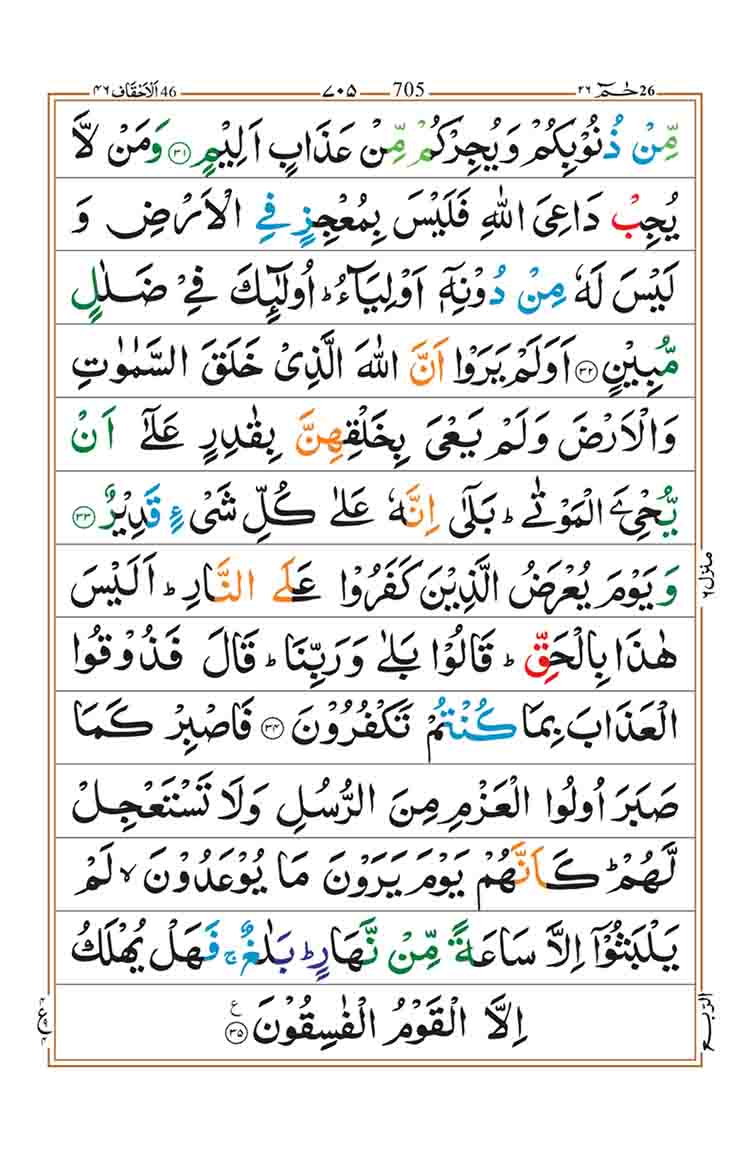 حٰمٓ 26 ٢٦ 705 ٧٠٥ 46 اَلْاَحْقَاف ٤٦
مِّنْ ذُنُوْبِكُمْ وَيُجِرْكُمْ مِّنْ عَذَابٍ اَلِيْمٍ ﴿٣١﴾ وَمَنْ لَّا
يُجِبْ دَاعِیَ اللّٰهِ فَلَيْسَ بِمُعْجِزٍ فِی الْاَرْضِ وَ
لَيْسَ لَهٗ مِنْ دُوْنِهٖٓ اَوْلِيَآءُ ؕ اُولٰٓئِكَ فِیْ ضَلٰلٍ
مُّبِيْنٍ ﴿٣٢﴾ اَوَلَمْ يَرَوْا اَنَّ اللّٰهَ الَّذِیْ خَلَقَ السَّمٰوٰتِ
وَالْاَرْضَ وَلَمْ يَعْیَ بِخَلْقِهِنَّ بِقٰدِرٍ عَلٰٓی اَنْ
يُّحْیِۦَ الْمَوْتٰی ؕ بَلٰٓی اِنَّهٗ عَلٰی كُلِّ شَیْءٍ قَدِيْرٌ ﴿٣٣﴾
وَيَوْمَ يُعْرَضُ الَّذِيْنَ كَفَرُوْا عَلَی النَّارِ ؕ اَلَيْسَ
هٰذَا بِالْحَقِّ ؕ قَالُوْا بَلٰی وَرَبِّنَا ؕ قَالَ فَذُوْقُوا
الْعَذَابَ بِمَا كُنْتُمْ تَكْفُرُوْنَ ﴿٣٤﴾ فَاصْبِرْ كَمَا
صَبَرَ اُولُوا الْعَزْمِ مِنَ الرُّسُلِ وَلَا تَسْتَعْجِلْ
لَّهُمْ ؕ كَاَنَّهُمْ يَوْمَ يَرَوْنَ مَا يُوْعَدُوْنَ ۙ لَمْ
يَلْبَثُوْٓا اِلَّا سَاعَةً مِّنْ نَّهَارٍ ؕ بَلٰغٌ ۚ فَهَلْ يُهْلَكُ
اِلَّا الْقَوْمُ الْفٰسِقُوْنَ ﴿٣٥﴾ ع
منزل ٦
الربع